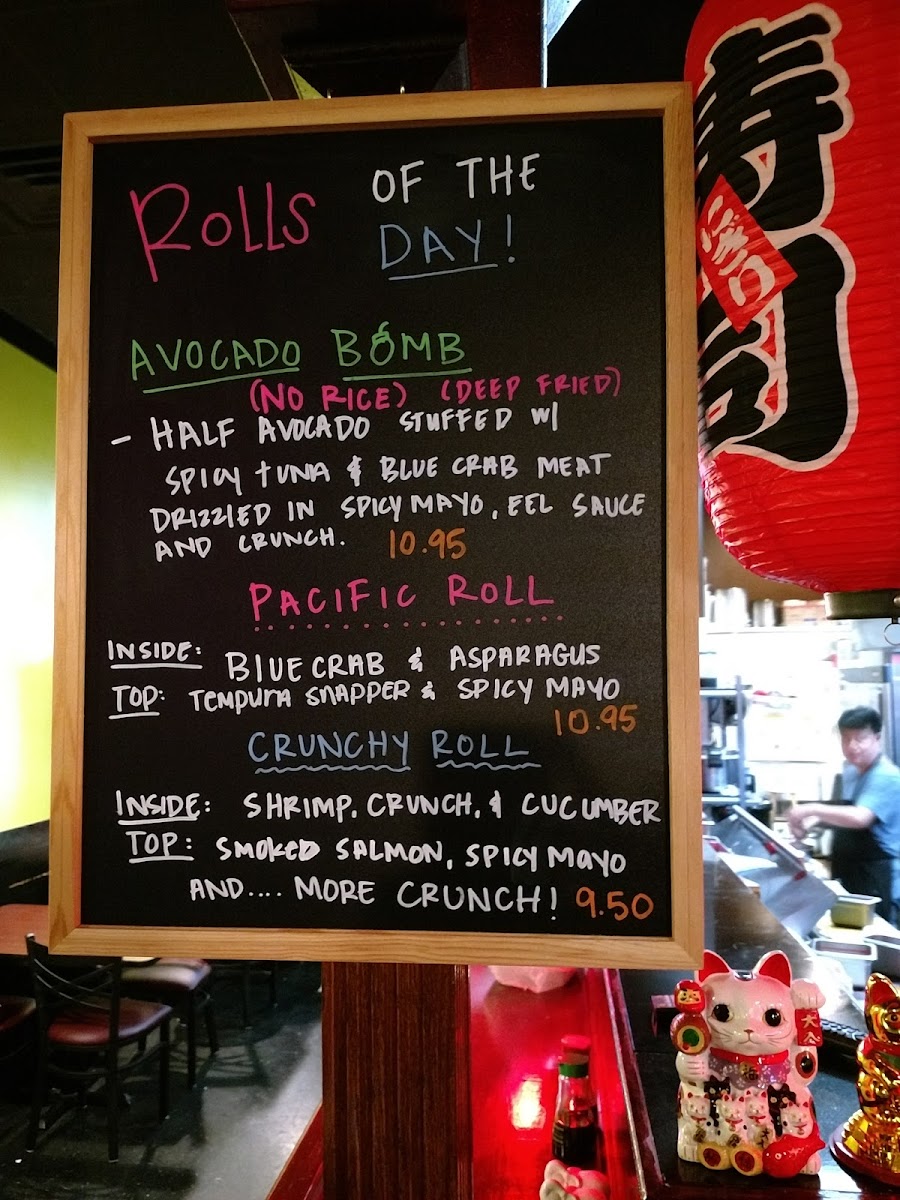 Rolls OF THE
DAY!
AVOCADO BOMB
(NO RICE) (DEEP FRIED)
- HALF AVOCADO STUFFED W/
SPICY TUNA & BLUE CRAB MEAT
DRIZZLED IN SPICY MAYO, EEL SAUCE
AND CRUNCH. 10.95
PACIFIC ROLL
INSIDE: BLUE CRAB & ASPARAGUS
TOP: TEMPURA SNAPPER & SPICY MAYO
10.95
CRUNCHY ROLL
INSIDE: SHRIMP, CRUNCH, & CUCUMBER
TOP: SMOKED SALMON, SPICY MAYO
AND.... MORE CRUNCH! 9.50
寿司
にぎり